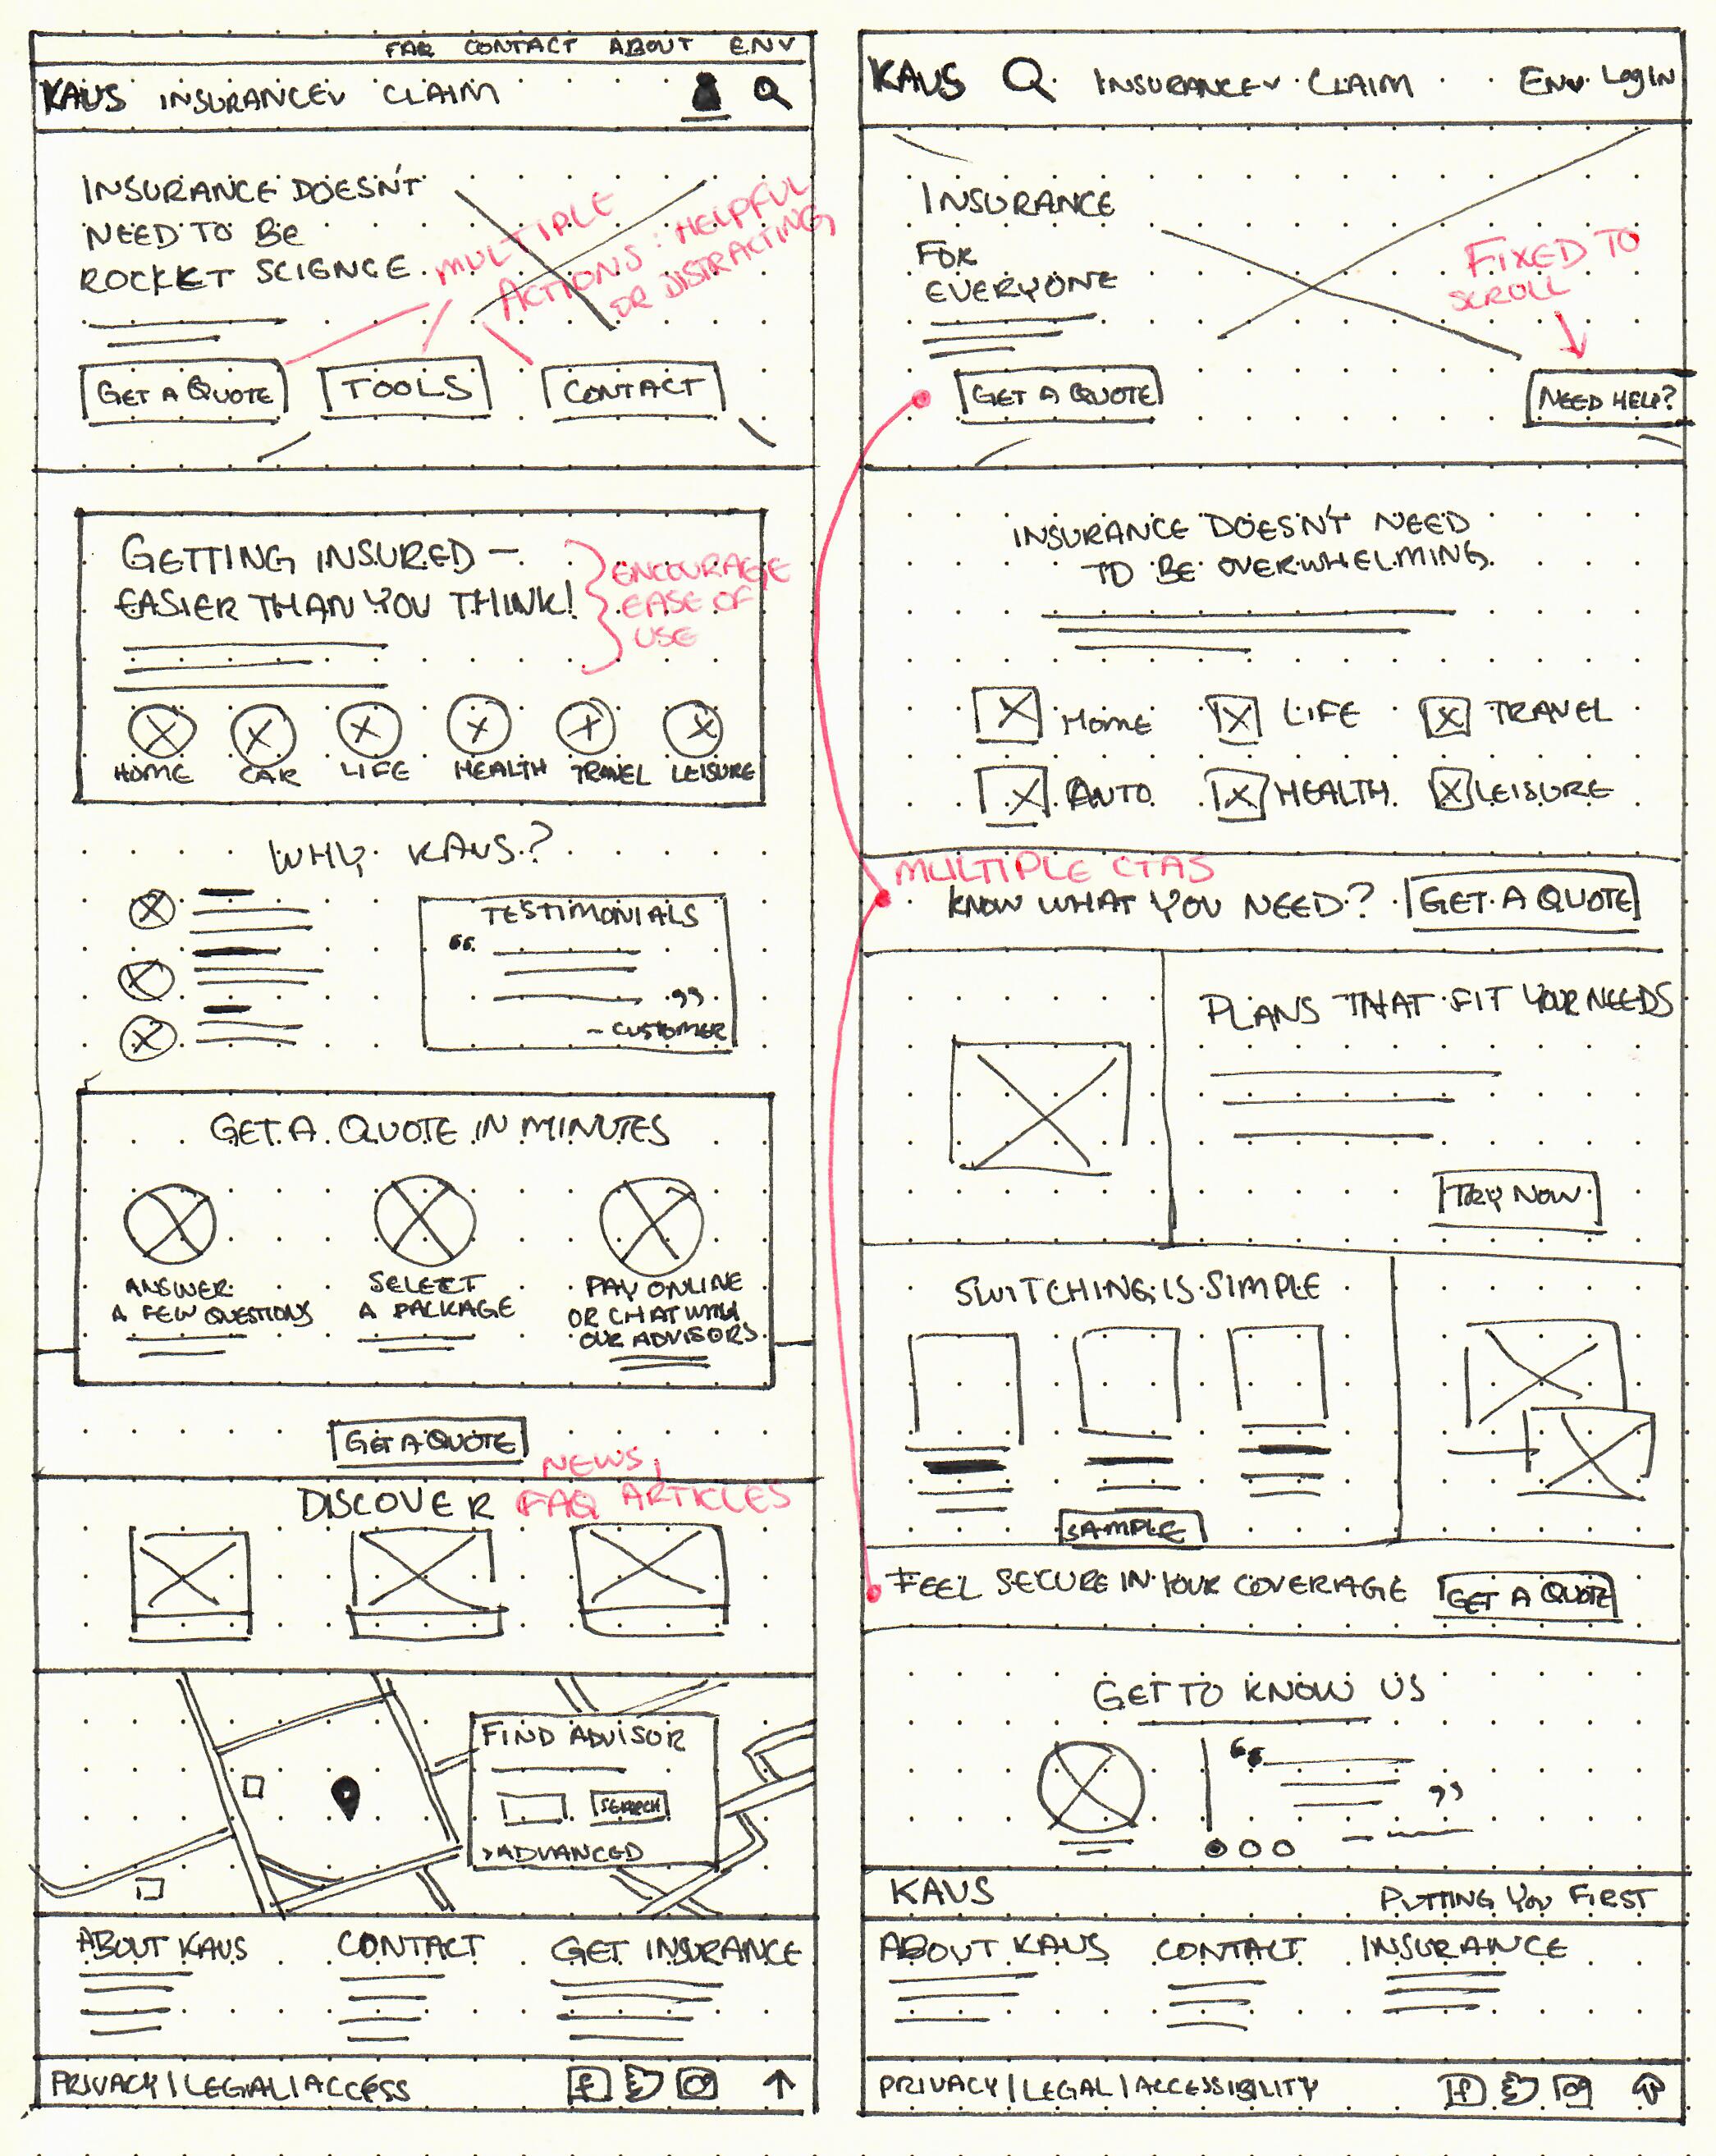 FAQ CONTACT ABOUT EN˅
KAUS INSURANCE˅ CLAIM
INSURANCE DOESN'T
NEED TO BE
ROCKET SCIENCE
MULTIPLE
ACTIONS: HELPFUL
OR DISTRACTING
GET A QUOTE
TOOLS
CONTACT
GETTING INSURED —
EASIER THAN YOU THINK!
ENCOURAGE
EASE OF
USE
HOME CAR LIFE HEALTH TRAVEL LEISURE
WHY KAUS?
TESTIMONIALS
“
”
- CUSTOMER
GET A QUOTE IN MINUTES
ANSWER
A FEW QUESTIONS
SELECT
A PACKAGE
PAY ONLINE
OR CHAT WITH
OUR ADVISORS
GET A QUOTE
NEWS,
DISCOVER FAQ ARTICLES
FIND ADVISOR
SEARCH
>ADVANCED
ABOUT KAUS CONTACT GET INSURANCE
PRIVACY | LEGAL | ACCESS
KAUS INSURANCE˅ CLAIM EN˅ LOGIN
INSURANCE
FOR
EVERYONE
FIXED TO
SCROLL
GET A QUOTE
NEED HELP?
INSURANCE DOESN'T NEED
TO BE OVERWHELMING
HOME LIFE TRAVEL
AUTO HEALTH LEISURE
MULTIPLE CTAS
KNOW WHAT YOU NEED? GET A QUOTE
PLANS THAT FIT YOUR NEEDS
TRY NOW
SWITCHING IS SIMPLE
SAMPLE
FEEL SECURE IN YOUR COVERAGE GET A QUOTE
GET TO KNOW US
“
”
KAUS PUTTING YOU FIRST
ABOUT KAUS CONTACT INSURANCE
PRIVACY | LEGAL | ACCESSIBILITY